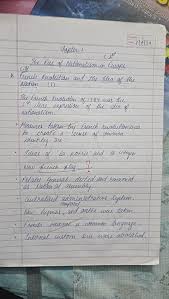 Chapter 1
The Rise of Nationalism in Europe
French Revolution and the Idea of the
Nation (1)
The French Revolution of 1789 was the
1st clear expression of the
nationalism.
Measures taken by French revolutionaries
to create a sense of common
identity
Ideas of la patrie and le citoyen
New French flag
Estates General elected and renamed
as National Assembly
Centralised administrative system
New hymns, and oaths was taken
French became a common language
Internal custom dues were abolished